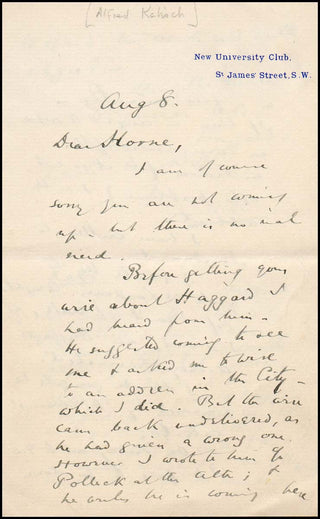 [Alfred
New University Club,
St James' Street, S.W.
Aug 8.
Dear Horne,
I am of course
sorry you are not coming
up - but there is no real
need.
Before getting your
wire about Haggard I
had heard from him -
He suggested coming to see
me & asked me to wire
to an address in the City -
which I did. But the wire
came back undelivered, as
he had given a wrong one.
However I wrote to him
Pollock at the &
he writes he is coming here